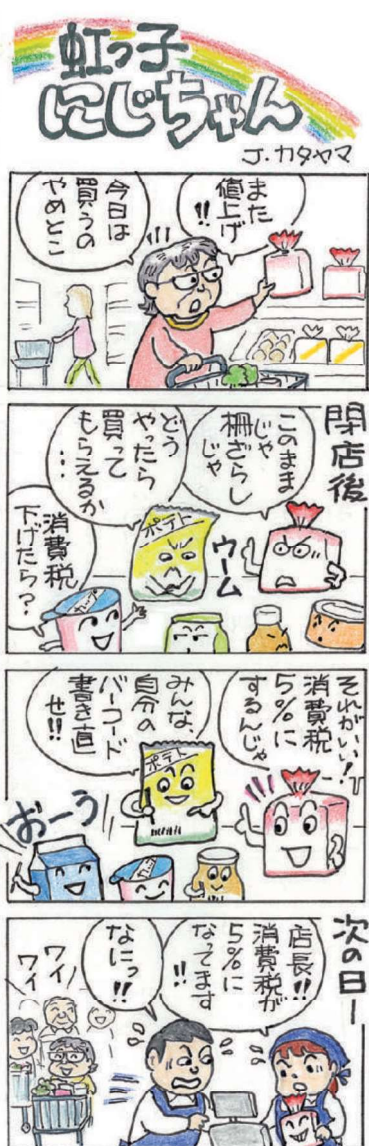 虹っ子
にじちゃん
J.カタヤマ
また
値上げ
!!
今日は
買うの
やめとこ
閉店後
このまま
じゃ
棚ざらし
じゃ
どう
やったら
買って
もらえるか
…
ポテト
ウーム
消費税
下げたら?
それがいい!
消費税
5%に
するんじゃ
みんな、
自分の
バーコード
書き直
せ!!
ポテト
おーう
次の日ー
店長!!
消費税が
5%に
なってます
!!
なにっ
!!
ワイ
ワイ